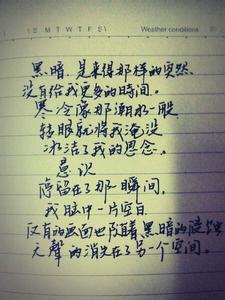 S M T W T F S
Weather conditions
黑暗，是来得那样的突然
没有给我更多的时间。
寒冷像那潮水一般
转眼就将我淹没
冰洁了我的思念。
意识
停留在了那一瞬间，
我脑中一片空白
仅有的画面也随着黑暗的
无聲的消失在了另一个空间。